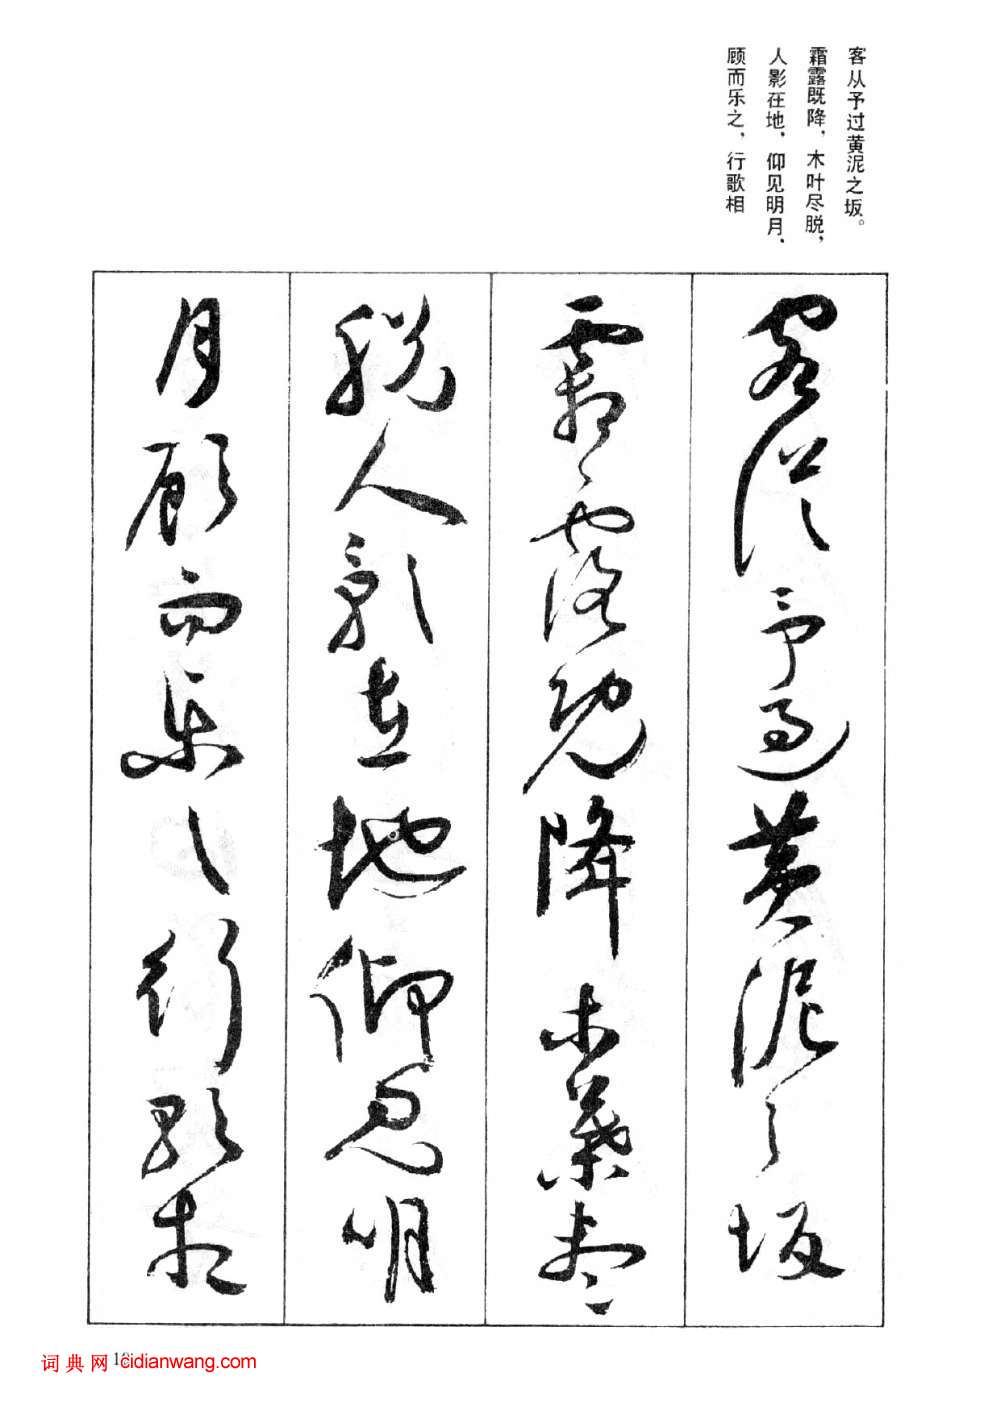 客从予过黄泥之坂。
霜露既降，木叶尽脱，
人影在地，仰见明月、
顾而乐之，行歌相
客從予過黃泥之坂
霜露既降木葉盡
脱人影在地仰見明
月顧而樂之行歌相
词典网 cidianwang.com